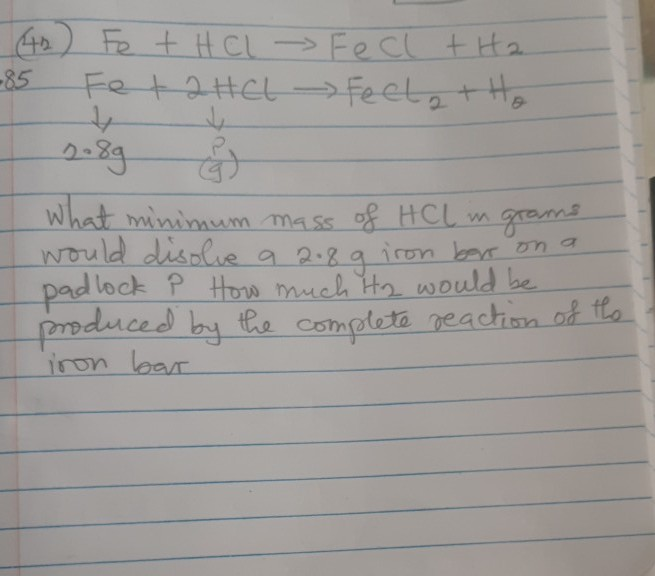 (42) Fe + HCl → FeCl + H₂
.85 Fe + 2HCl → FeCl₂ + H₂
↓ ↓
2.8g ?
(g)
What minimum mass of HCl in grams
would disolve a 2.8 g iron bar on a
padlock ? How much H₂ would be
produced by the complete reaction of the
iron bar